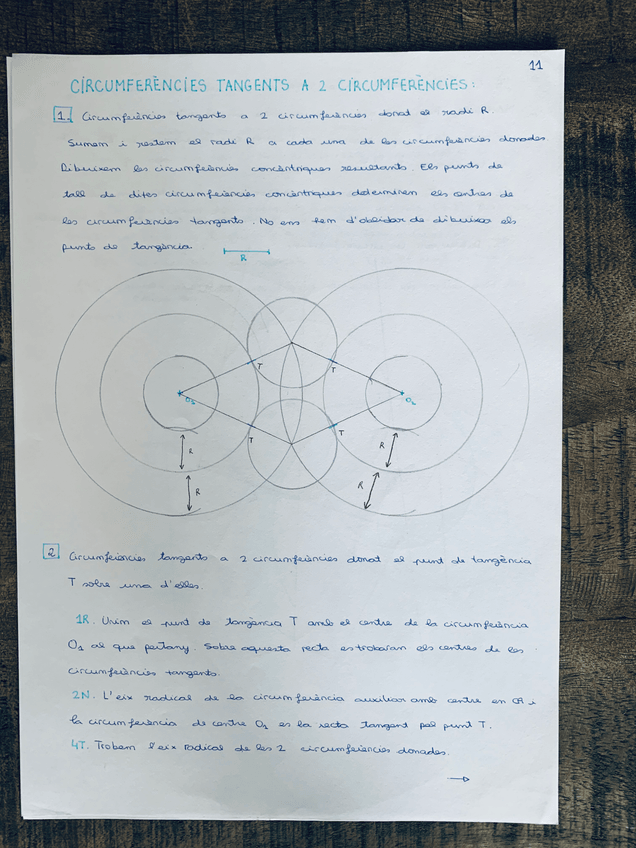 11
CIRCUMFERÈNCIES TANGENTS A 2 CIRCUMFERÈNCIES:
1. Circumferències tangents a 2 circumferències donat el radi R.
Sumem i restem el radi R a cada una de les circumferències donades.
Dibuixem les circumferències concèntriques resultants. Els punts de
tall de dites circumferències concèntriques determinen els centres de
les circumferències tangents. No ens hem d'oblidar de dibuixar els
punts de tangència.
R
T
T
O1
O2
T
T
R
R
R
R
2 Circumferències tangents a 2 circumferències donat el punt de tangència
T sobre una d'elles.
1R. Unim el punt de tangència T amb el centre de la circumferència
O1 al que pertany. Sobre aquesta recta es trobaran els centres de les
circumferències tangents.
2N. L'eix radical de la circumferència auxiliar amb centre en i
la circumferència de centre O1 es la recta tangent pel punt T.
4T. Trobem l'eix radical de les 2 circumferències donades.
→